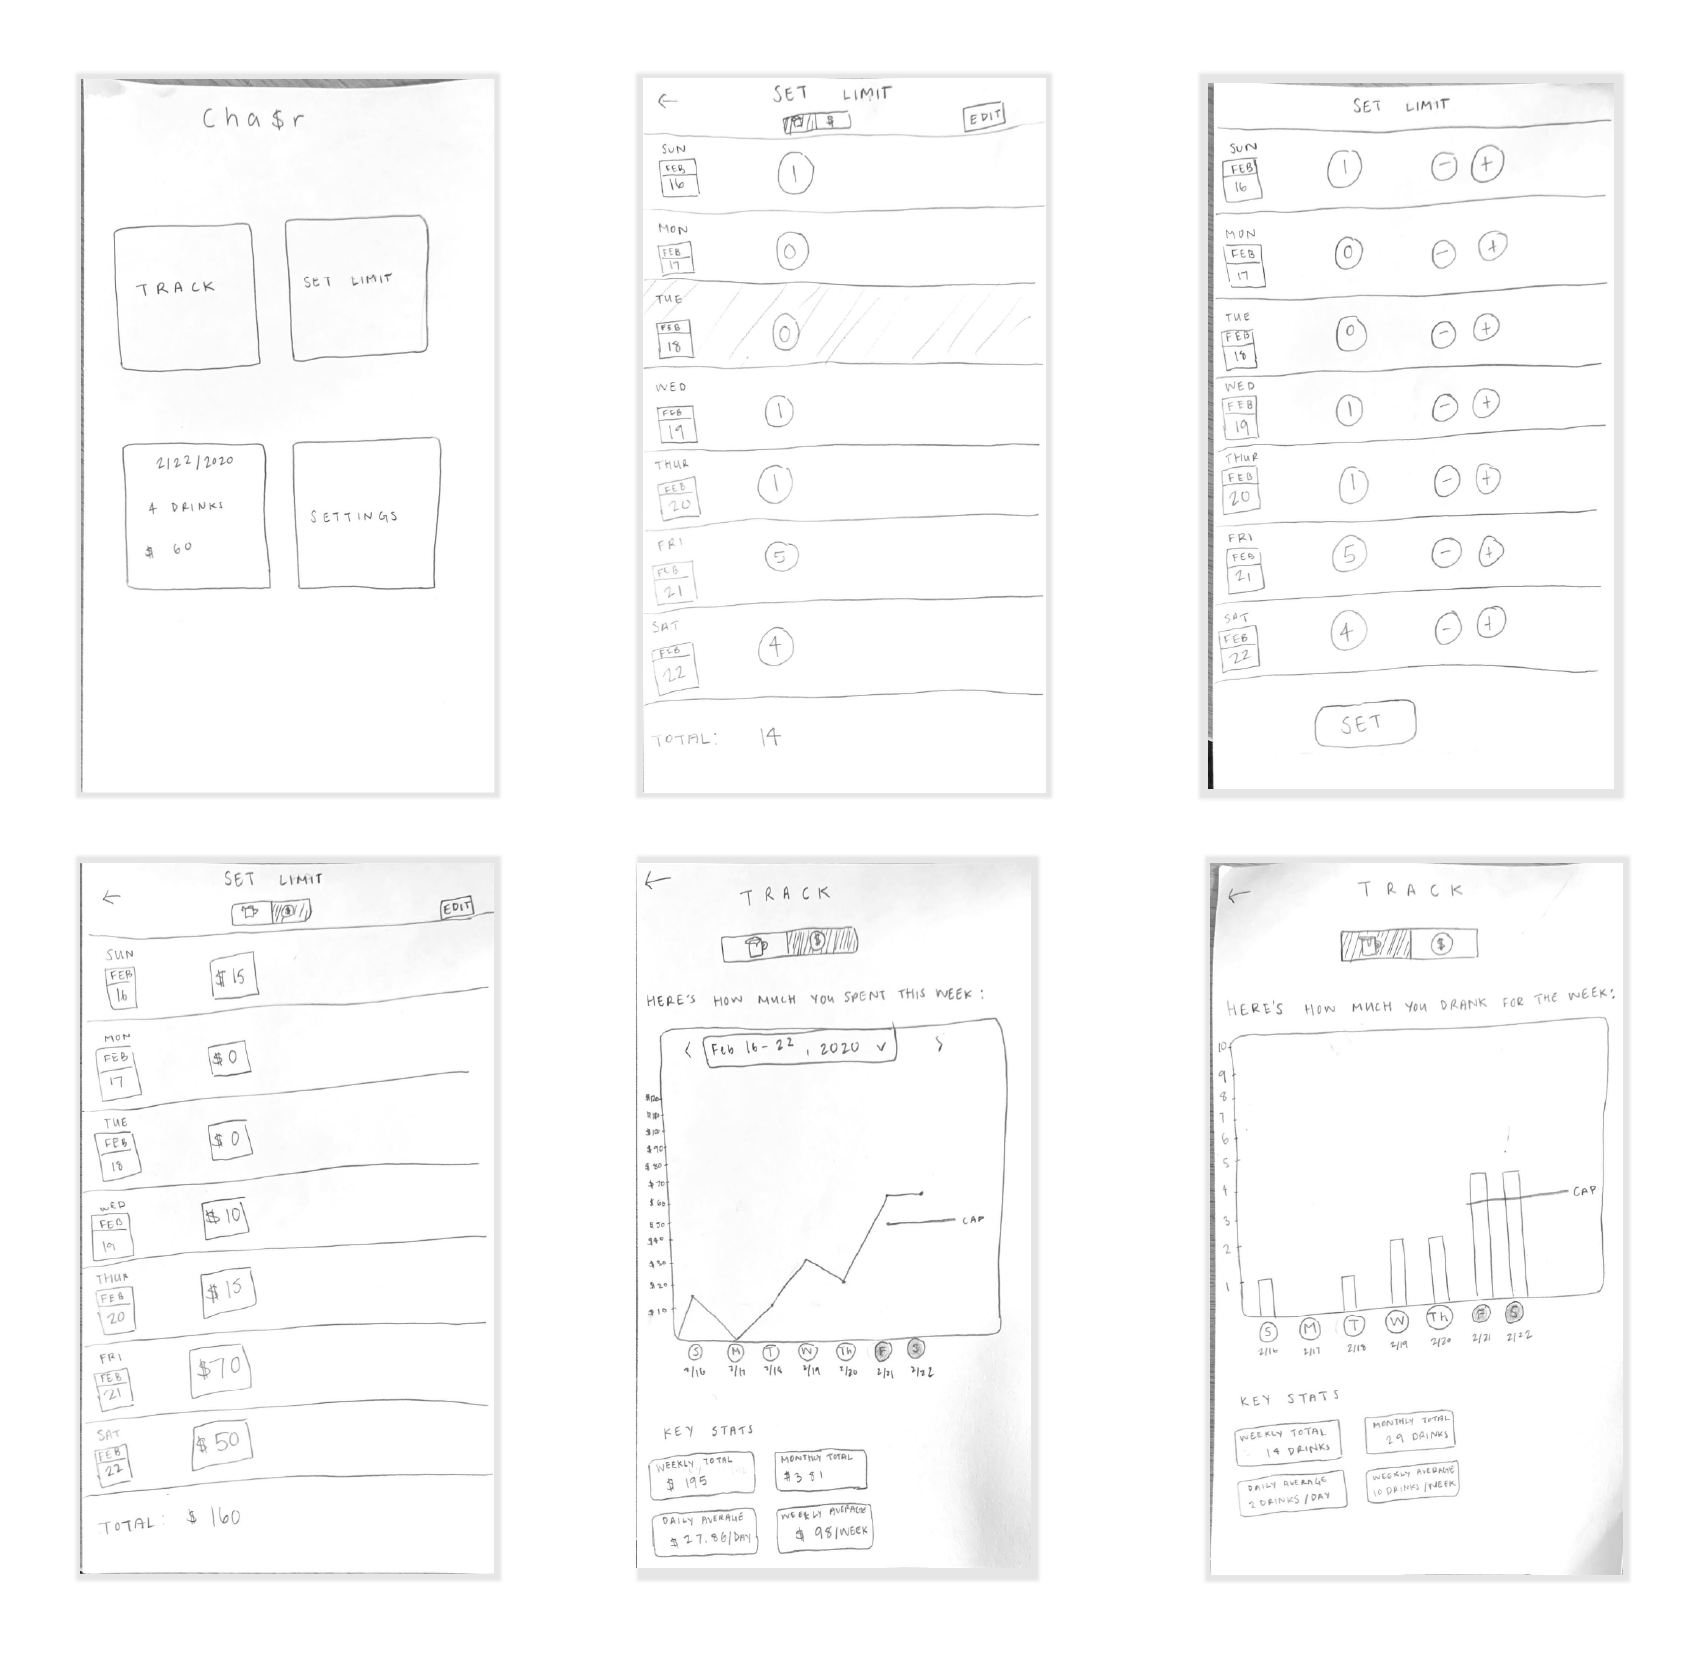 Cha$r
TRACK
SET LIMIT
2/22/2020
4 DRINKS
$ 60
SETTINGS
←
SET LIMIT
$
EDIT
SUN
FEB
16
1
MON
FEB
17
0
TUE
FEB
18
0
WED
FEB
19
1
THUR
FEB
20
1
FRI
FEB
21
5
SAT
FEB
22
4
TOTAL: 14
SET LIMIT
SUN
FEB
16
1 - +
MON
FEB
17
0 - +
TUE
FEB
18
0 - +
WED
FEB
19
1 - +
THUR
FEB
20
1 - +
FRI
FEB
21
5 - +
SAT
FEB
22
4 - +
SET
←
SET LIMIT
$
EDIT
SUN
FEB
16
$15
MON
FEB
17
$0
TUE
FEB
18
$0
WED
FEB
19
$10
THUR
FEB
20
$15
FRI
FEB
21
$70
SAT
FEB
22
$50
TOTAL: $ 160
←
TRACK
$
HERE'S HOW MUCH YOU SPENT THIS WEEK:
< Feb 16-22, 2020 v >
$90
$80
$70
$60
$50
$40
$30
$20
$10
CAP
S M T W Th F S
2/16 2/17 2/18 2/19 2/20 2/21 2/22
KEY STATS
WEEKLY TOTAL
$ 195
MONTHLY TOTAL
$381
DAILY AVERAGE
$27.86/DAY
WEEKLY AVERAGE
$ 98/WEEK
←
TRACK
$
HERE'S HOW MUCH YOU DRANK FOR THE WEEK:
10
9
8
7
6
5
4
3
2
1
CAP
S M T W Th F S
2/16 2/17 2/18 2/19 2/20 2/21 2/22
KEY STATS
WEEKLY TOTAL
14 DRINKS
MONTHLY TOTAL
29 DRINKS
DAILY AVERAGE
2 DRINKS/DAY
WEEKLY AVERAGE
10 DRINKS/WEEK